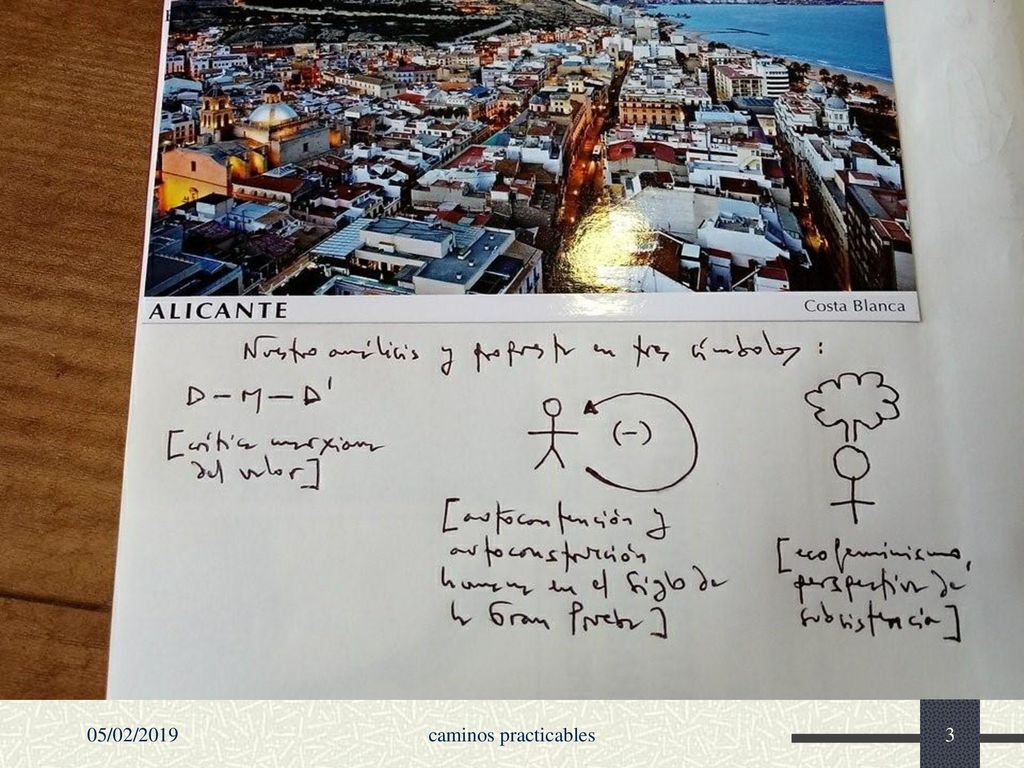 ALICANTE
Costa Blanca
Nuestro análisis y propuesta en tres símbolos:
D-M-D'
[crítica marxiana
del valor]
(-)
[autocontención y
autoconstrucción
humana en el Siglo de
la Gran Prueba]
[ecofeminismo,
perspectiva de
subsistencia]
05/02/2019
caminos practicables
3